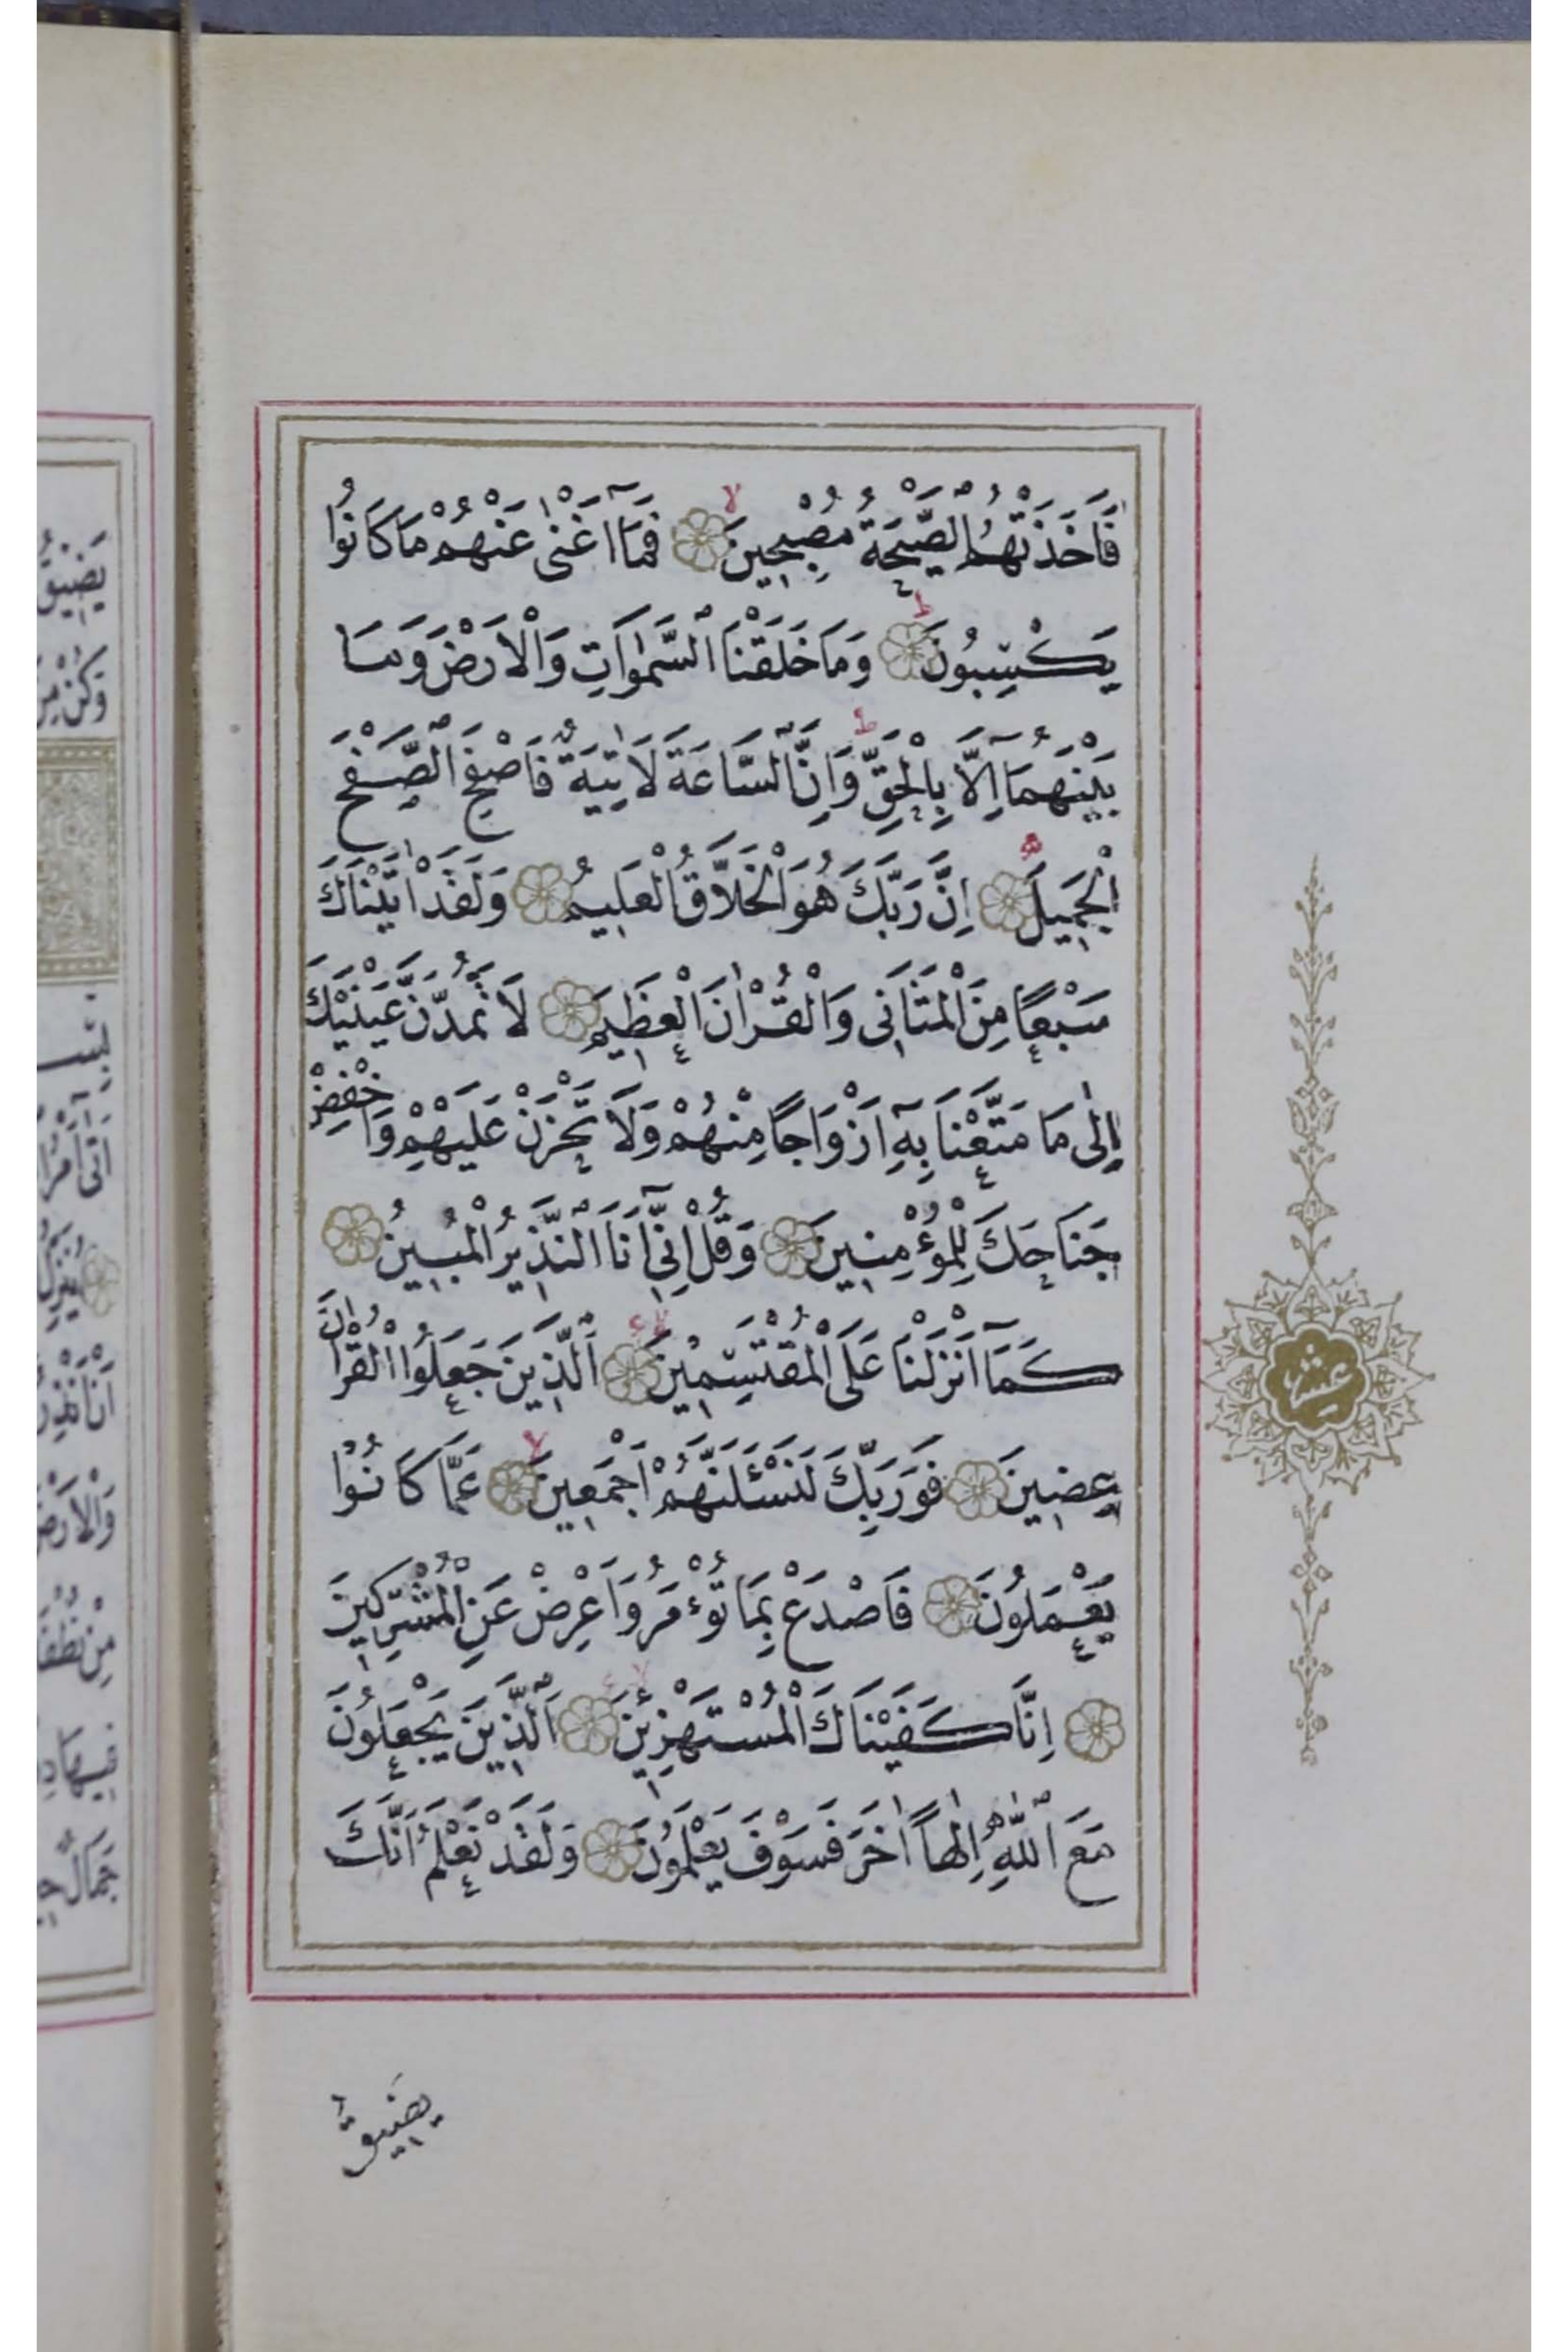 فَاَخَذَتْهُمُ الصَّيْحَةُ مُصْبِحِينَ فَمَٓا اَغْنٰى عَنْهُمْ مَا كَانُوا
يَكْسِبُونَ وَمَا خَلَقْنَا السَّمٰوَاتِ وَالْاَرْضَ وَمَا
بَيْنَهُمَٓا اِلَّا بِالْحَقِّ وَاِنَّ السَّاعَةَ لَاٰتِيَةٌ فَاصْفَحِ الصَّفْحَ
الْجَمِيلَ اِنَّ رَبَّكَ هُوَ الْخَلَّاقُ الْعَلِيمُ وَلَقَدْ اٰتَيْنَاكَ
سَبْعًا مِنَ الْمَثَانِى وَالْقُرْاٰنَ الْعَظِيمَ لَا تَمُدَّنَّ عَيْنَيْكَ
اِلٰى مَا مَتَّعْنَا بِهِٓ اَزْوَاجًا مِنْهُمْ وَلَا تَحْزَنْ عَلَيْهِمْ وَاخْفِضْ
جَنَاحَكَ لِلْمُؤْمِنِينَ وَقُلْ اِنِّٓى اَنَا النَّذِيرُ الْمُبِينُ
كَمَٓا اَنْزَلْنَا عَلَى الْمُقْتَسِمِينَ اَلَّذِينَ جَعَلُوا الْقُرْاٰنَ
عِضِينَ فَوَرَبِّكَ لَنَسْئَلَنَّهُمْ اَجْمَعِينَ عَمَّا كَانُوا
يَعْمَلُونَ فَاصْدَعْ بِمَا تُؤْمَرُ وَاَعْرِضْ عَنِ الْمُشْرِكِينَ
اِنَّا كَفَيْنَاكَ الْمُسْتَهْزِئِينَ اَلَّذِينَ يَجْعَلُونَ
مَعَ اللّٰهِ اِلٰهًا اٰخَرَ فَسَوْفَ يَعْلَمُونَ وَلَقَدْ نَعْلَمُ اَنَّكَ
عشر
يَضِيقُ